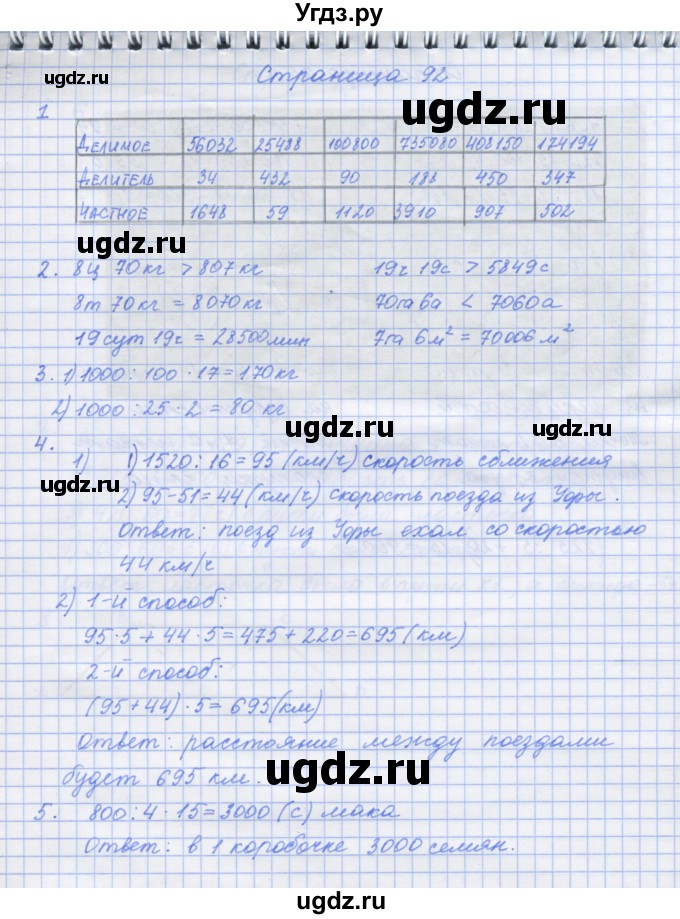 Угдз.ру
Страница 92
1
Делимое 56032 25488 100800 735080 408150 174194
Делитель 34 432 90 188 450 347
Частное 1648 59 1120 3910 907 502
2. 8ц 70кг > 807кг 19ч 19с > 5849с
8т 70кг = 8070кг 70га 6а < 7060а
19сут 19ч = 28500мин 7га 6м² = 70006м²
3. 1) 1000 : 100 · 17 = 170кг
2) 1000 : 25 · 2 = 80 кг
4.
1) 1) 1520 : 16 = 95 (км/ч) скорость сближения
2) 95 - 51 = 44 (км/ч) скорость поезда из Уфы.
Ответ: поезд из Уфы ехал со скоростью
44 км/ч
2) 1-й способ:
95 · 5 + 44 · 5 = 475 + 220 = 695 (км)
2-й способ:
(95 + 44) · 5 = 695 (км)
Ответ: расстояние между поездами
будет 695 км.
5. 800 : 4 · 15 = 3000 (с) мака
Ответ: в 1 коробочке 3000 семян.
ugdz.ru
ugdz.ru
ugdz.ru
ugdz.ru
ugdz.ru
ugdz.ru
ugdz.ru
ugdz.ru
ugdz.ru
ugdz.ru
ugdz.ru